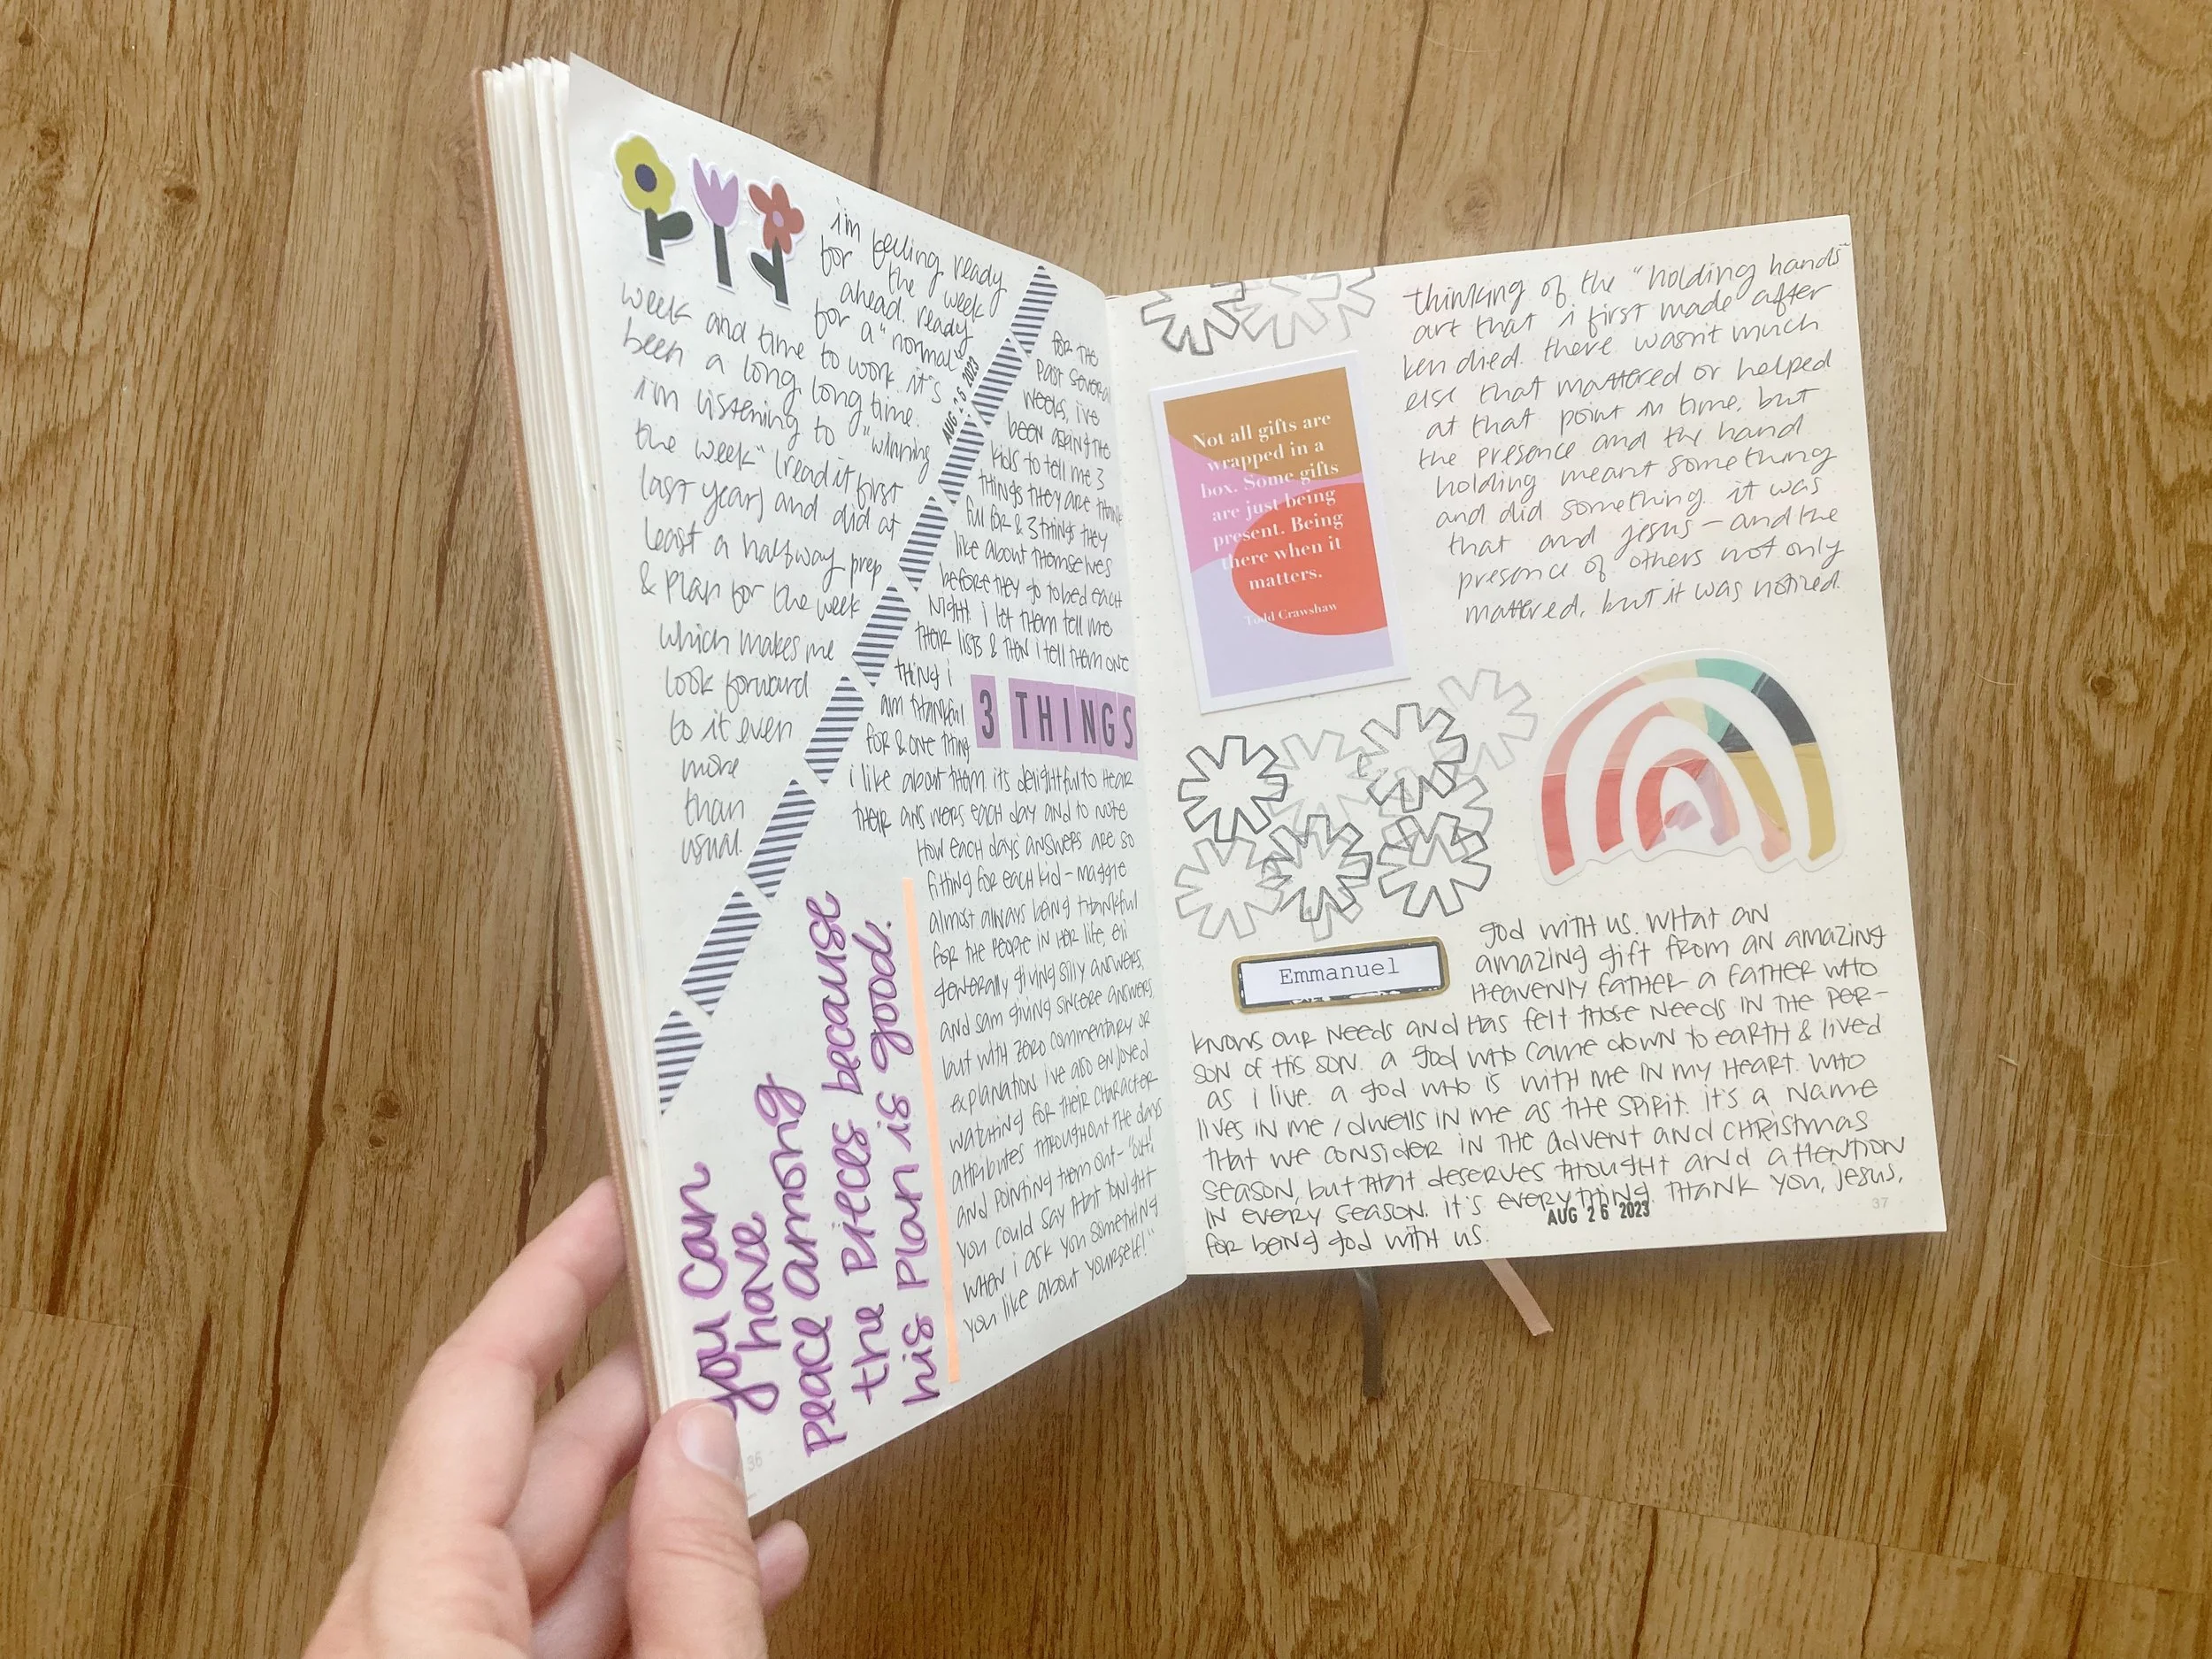 i'm feeling ready
for the week
ahead. ready
for a "normal"
week and time to work. it's
been a long long time.
i'm listening to "winning
the week" (read it first
last year) and did at
least a halfway prep
& plan for the week
which makes me
look forward
to it even
more
than
usual.
AUG 26 2023
for the
past several
weeks, i've
been asking the
kids to tell me 3
things they are thank
ful for & 3 things they
like about themselves
before they go to bed each
night. i let them tell me
their lists & then i tell them one
thing i
am thankful
for & one thing
3 THINGS
i like about them. its delightful to hear
their answers each day and to note
how each days' answers are so
fitting for each kid - maggie
almost always being thankful
for the people in her life, eli
generally giving silly answers,
and sam giving sincere answers
but with zero commentary or
explanation. i've also enjoyed
watching for their character
attributes throughout the days
and pointing them out - "ooh!
you could say that tonight
when i ask you something
you like about yourself!"
you can
have
peace among
the pieces because
his plan is good.
36
thinking of the "holding hands"
art that i first made after
ken died. there wasn't much
else that mattered or helped
at that point in time, but
the presence and the hand
holding meant something
and did something. it was
that and jesus - and the
presence of others not only
mattered, but it was noticed.
Not all gifts are
wrapped in a
box. Some gifts
are just being
present. Being
there when it
matters.
Todd Crawshaw
Emmanuel
god with us. what an
amazing gift from an amazing
heavenly father a father who
knows our needs and has felt those needs in the per-
son of his son. a god who came down to earth & lived
as i live. a god who is with me in my heart. who
lives in me / dwells in me as the spirit. it's a name
that we consider in the advent and christmas
season, but that deserves thought and attention
in every season. it's everything. thank you, jesus,
for being god with us.
AUG 26 2023
37